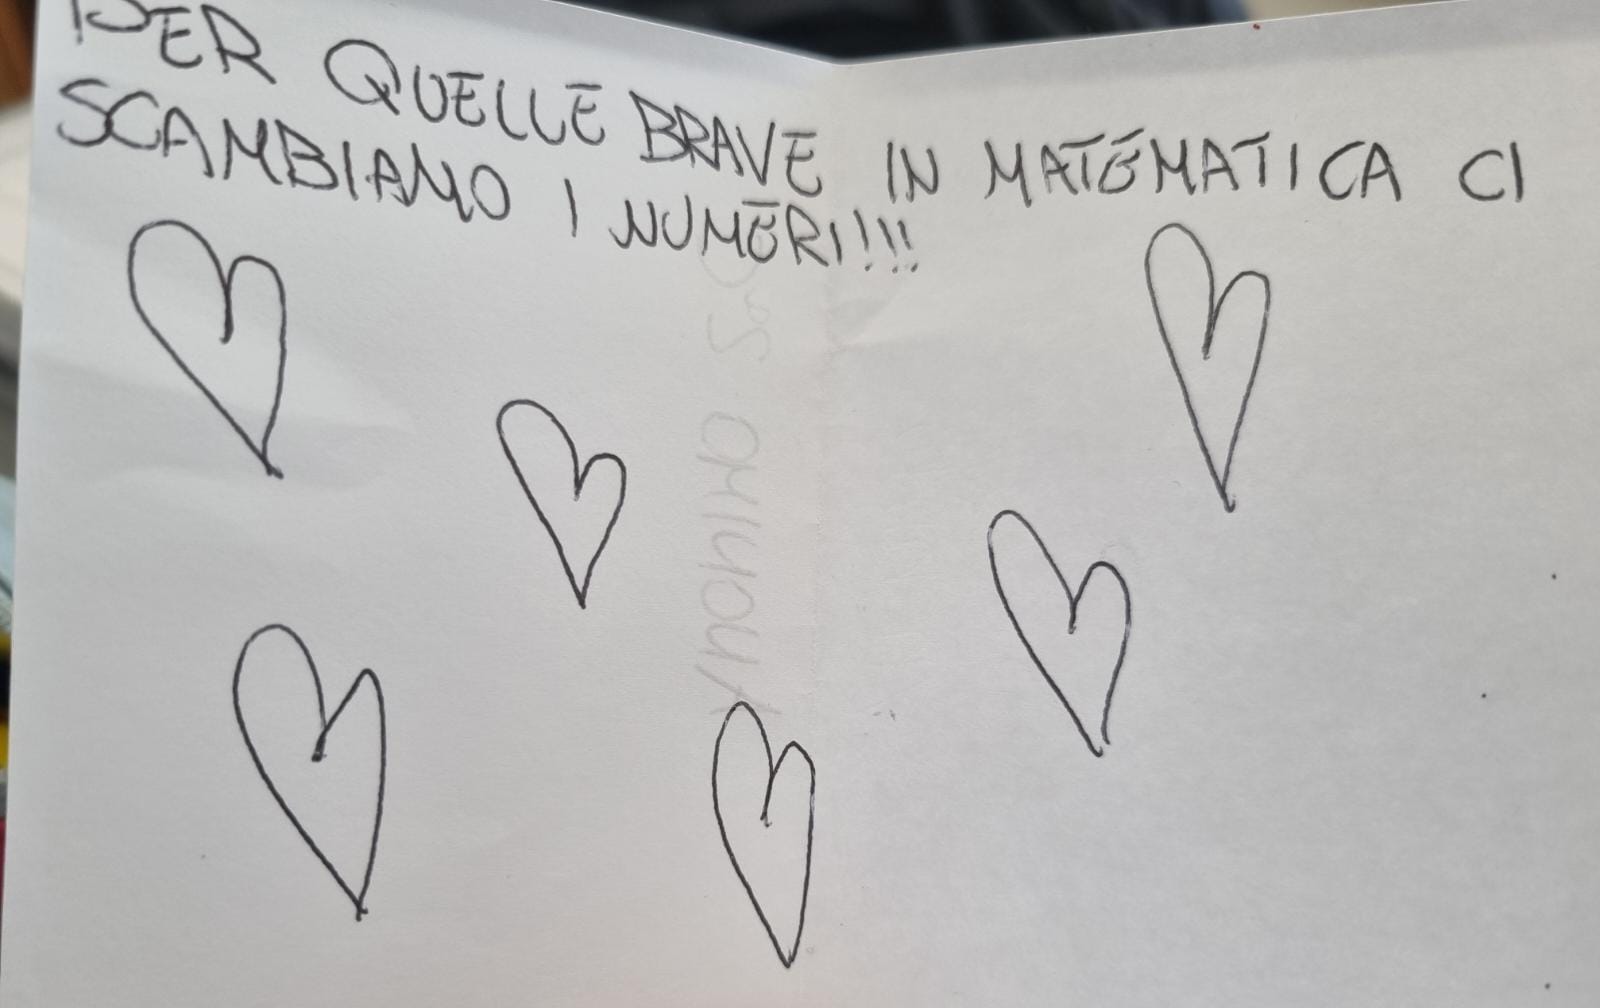 PER QUELLE BRAVE IN MATEMATICA CI
SCAMBIAMO I NUMERI!!!